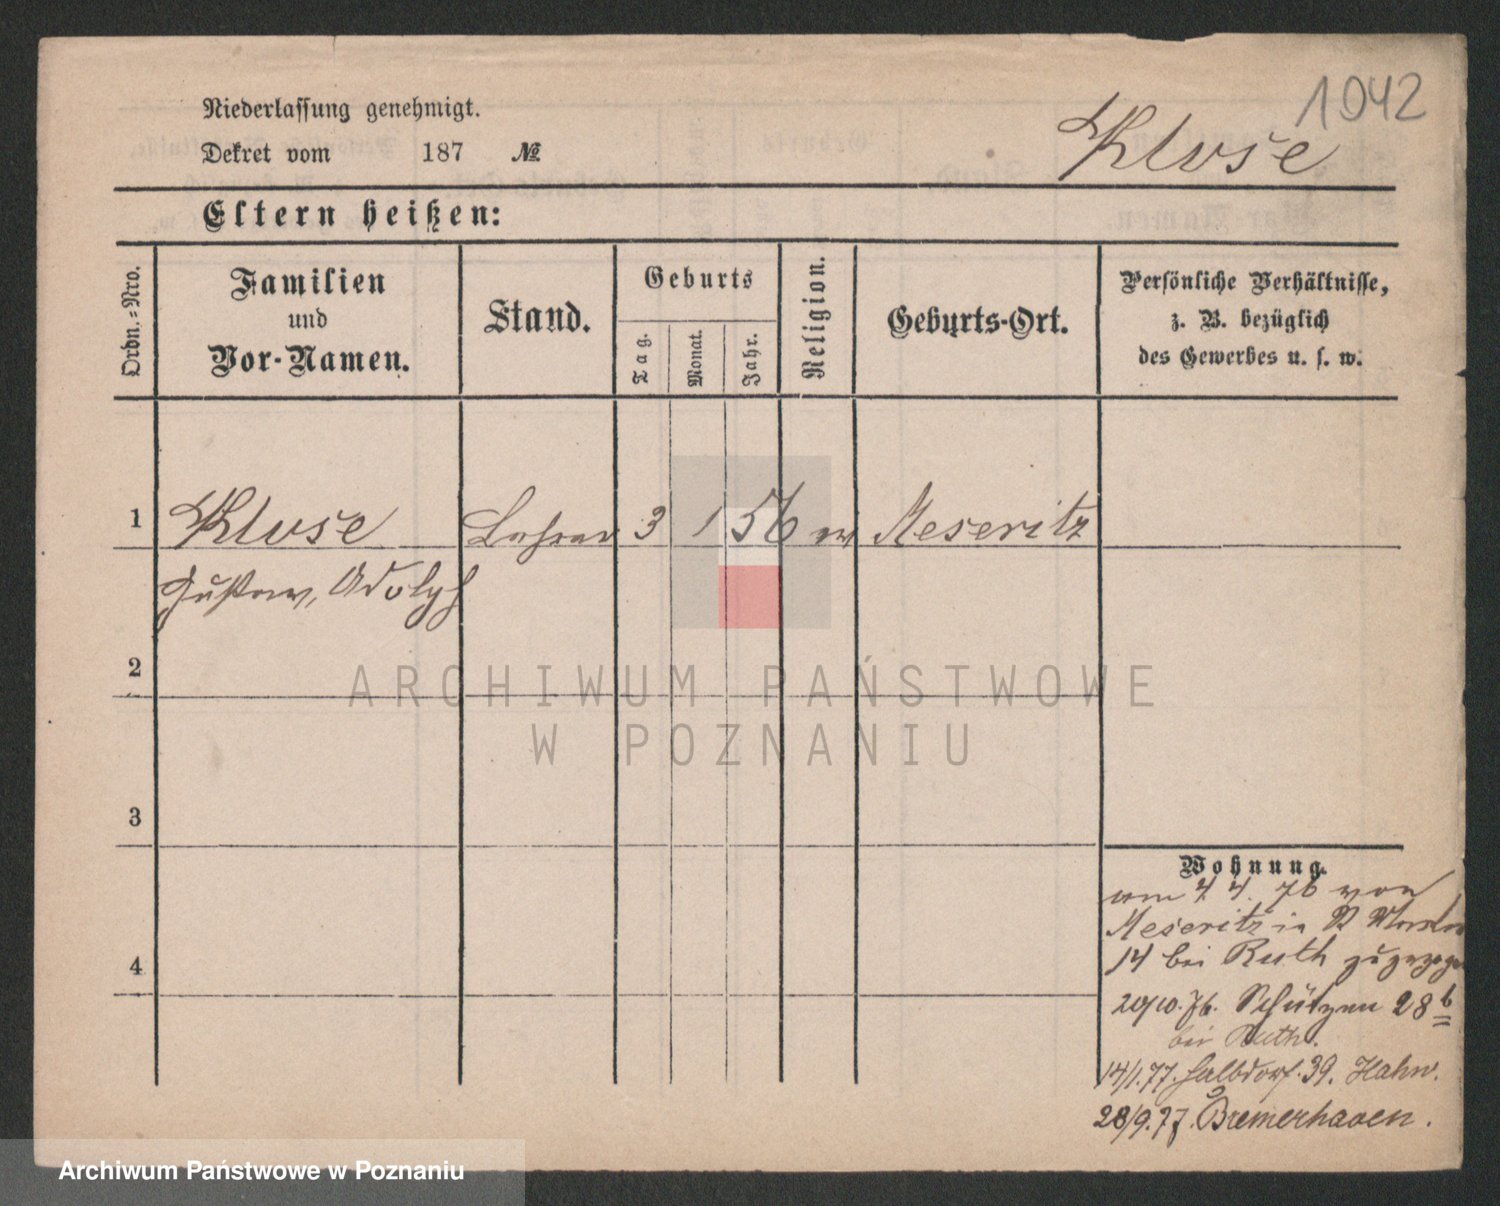 1042
Niederlassung genehmigt.
Kluse
Dekret vom 187 №
Eltern heißen:
Ordn.=Nro.
Familien
und
Vor-Namen.
Stand.
Geburts
Tag.
Monat.
Jahr.
Religion.
Geburts-Ort.
Persönliche Verhältnisse,
z. B. bezüglich
des Gewerbes u. s. w.
1 Kluse Lehrer 3 1 56 ev Meseritz
Gustav, Adolph
2
3
4
Wohnung.
am 4. 76 von
Meseritz in
14 bei Ruth zugezogen
20/10.76. Schützen 28b
bei Ruth.
14/1.77. Halbdorf. 39. Hahn.
28/9.77. Bremerhaven.
ARCHIWUM PAŃSTWOWE
W POZNANIU
Archiwum Państwowe w Poznaniu